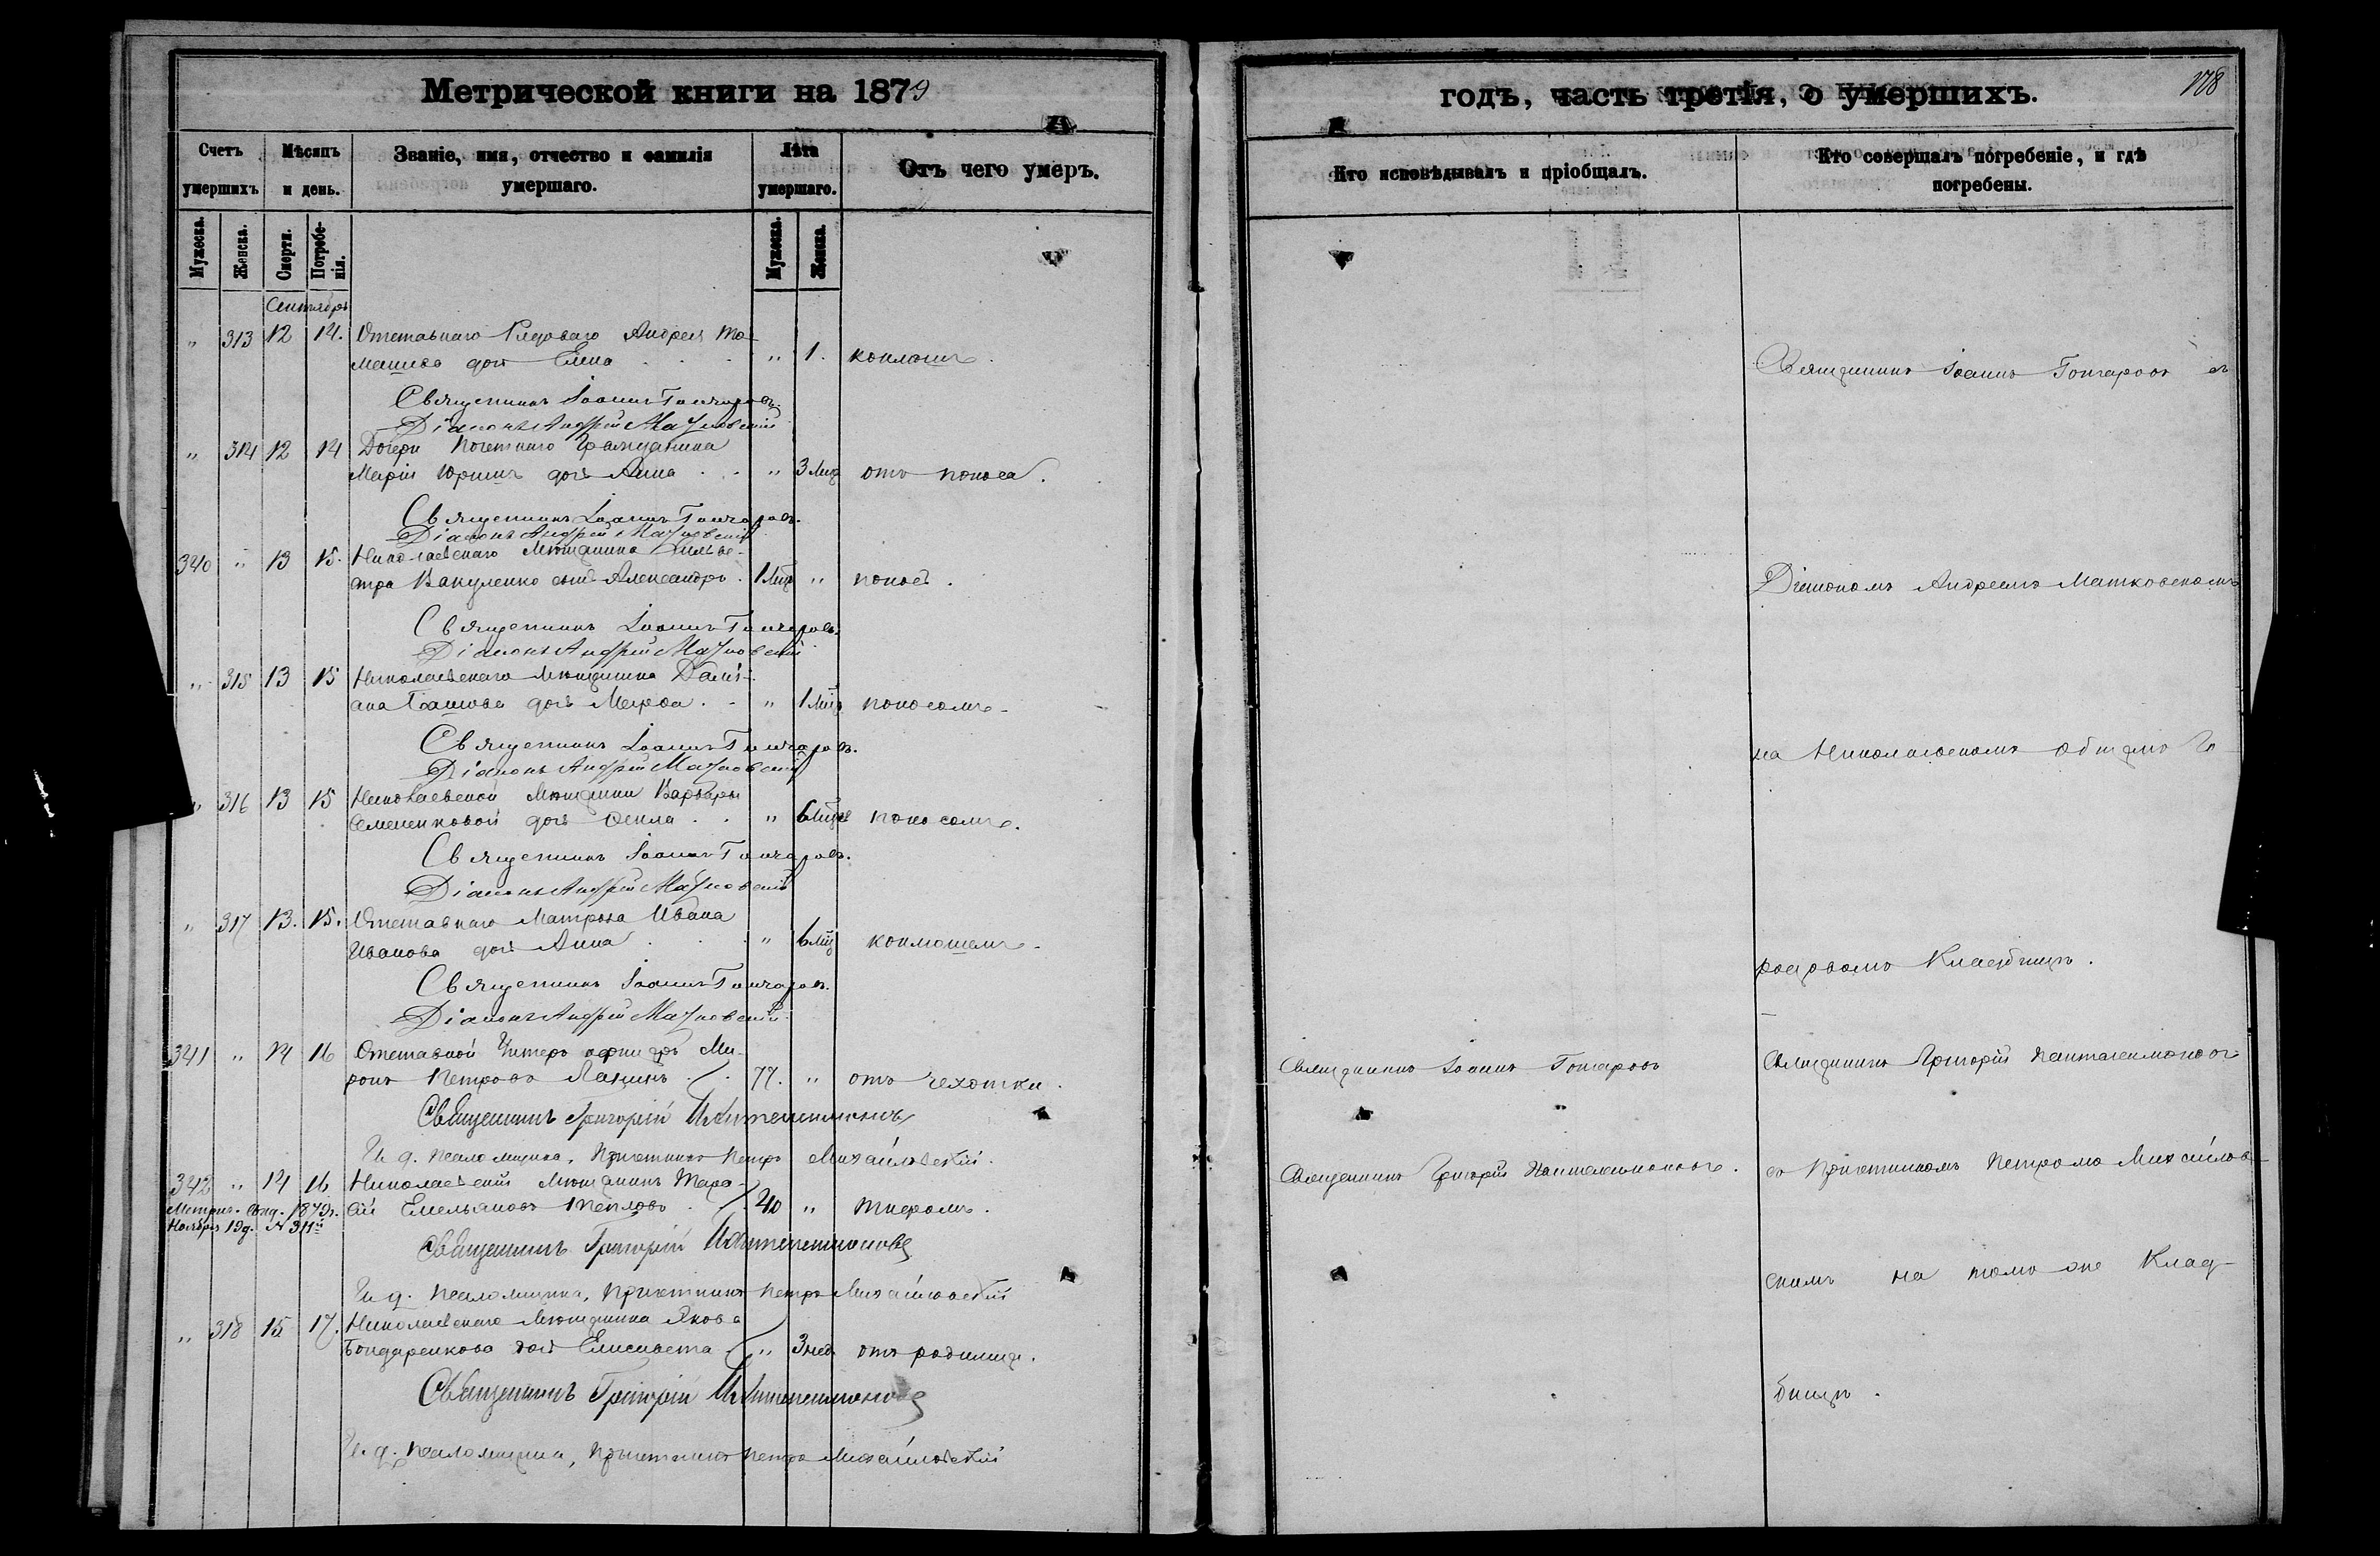 Метрической книги на 1879
годъ, часть третія, о умершихъ.
178
Счетъ умершихъ.
Мѣсяцъ и день.
Званіе, имя, отчество и фамилія умершаго.
Лѣта умершаго.
Отъ чего умеръ.
Кто исповѣдывалъ и пріобщалъ.
Кто совершалъ погребеніе, и гдѣ погребены.
Мужеска.
Женска.
Смерти.
Погребенія.
Мужеска.
Женска.
Сентябрь
" 313 12 14. Отставнаго Рядоваго Андрея
дочь Елена " 1. коклюшъ.
Священникъ Іоаннъ Гончаровъ съ
Священникъ Іоаннъ Гончаровъ.
Діаконъ Андрей Матковскій
" 314 12 14 Дочери Почетнаго Гражданина
Маріи Юршиъ дочь Анна " 3 Мца отъ поноса.
Священникъ Іоаннъ Гончаровъ.
Діаконъ Андрей Матковскій
340 " 13 15. Николаевскаго Мѣщанина Сильве-
стра Вакуленко сынъ Александръ. 1 Мца " поносъ.
Діакономъ Андреемъ Матковскимъ
Священникъ Іоаннъ Гончаровъ.
Діаконъ Андрей Матковскій
" 315 13 15 Николаевскаго Мѣщанина Дамі-
ана дочь Марфа. " 1 Мца поносомъ.
Священникъ Іоаннъ Гончаровъ.
на Николаевскомъ общемъ Го-
Діаконъ Андрей Матковскій
" 316 13 15 Николаевской Мѣщанки Варвары
Семененковой дочь " 6 Мцев поносомъ.
Священникъ Іоаннъ Гончаровъ.
Діаконъ Андрей Матковскій
" 317 13. 15. Отставнаго Матроза Ивана
Иванова дочь Анна " 6 Мц коклюшемъ.
родовомъ Кладбищѣ.
Священникъ Іоаннъ Гончаровъ.
Діаконъ Андрей Матковскій
341 " 14 16 Отставной Унтеръ офицеръ Ми-
ронъ Петровъ 77. " отъ чехотки.
Священникъ Іоаннъ Гончаровъ
Священникъ Григорій Пантелеимоновъ
Священникъ Григорій Пантелеимоновъ
И. д. Псаломщика, Причетникъ Петръ Михайловскій.
342 " 14 16 Николаевскій Мѣщанинъ Тара-
сій Емельяновъ Тепловъ 40 " тифомъ.
Священникъ Григорій Пантелеимоновъ.
съ Причетникомъ Петромъ Михайлов-
Метрич. Свид. 1879г.
Ноября 19д. № 311й
Священникъ Григорій Пантелеимоновъ
скимъ на томъ же Клад-
И. д. Псаломщика, Причетникъ Петръ Михайловскій
" 318 15 17. Николаевскаго Мѣщанина Якова
Бондаренкова дочь Елисавета " 3 нед отъ родимца.
бищѣ.
Священникъ Григорій Пантелеимоновъ
И. д. Псаломщика, Причетникъ Петръ Михайловскій